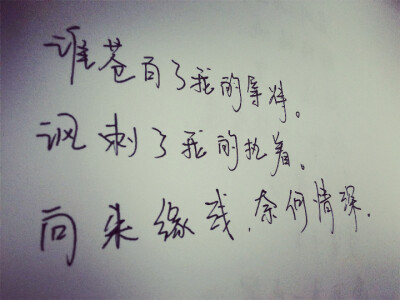 谁苍白了我的等待。
讽刺了我的执着。
向来缘浅,奈何情深.